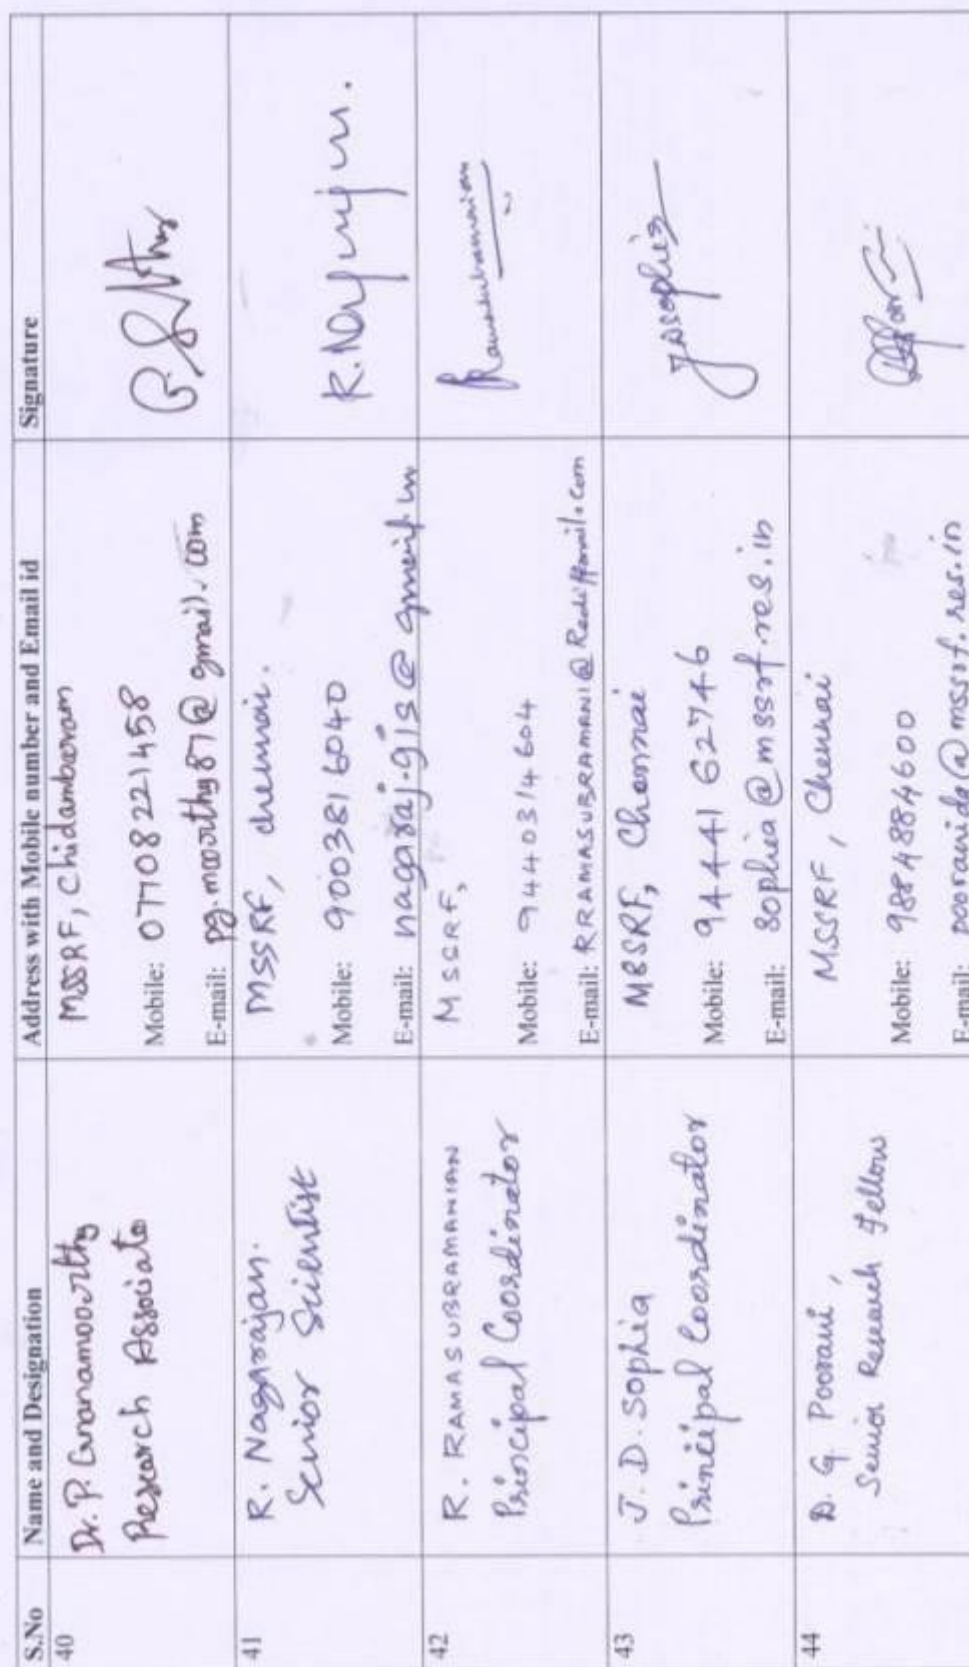 S.No Name and Designation Address with Mobile number and Email id Signature
40
Dr. P. Gnanamoorthy
Research Associate
MSSRF, Chidambaram
Mobile: 07708221458
E-mail: pg.moorthy87@gmail.com
41
R. Nagarajan.
Senior Scientist
MSSRF, chennai.
Mobile: 9003816040
E-mail: nagaraj.gis@gmail.
R. Nagarajan.
42
R. RAMASUBRAMANIAN
Principal Coordinator
MSSRF,
Mobile: 9440314604
E-mail: RRAMASUBRAMANI@Rediffmail.com
Ramasubramanian
43
J. D. Sophia
Principal Coordinator
MSSRF, Chennai
Mobile: 9444162746
E-mail: sophia@mssrf.res.in
JDSophia
44
D. G. Poorani,
Senior Research Fellow
MSSRF, Chennai
Mobile: 9884884600
E-mail: pooranidg@mssrf.res.in